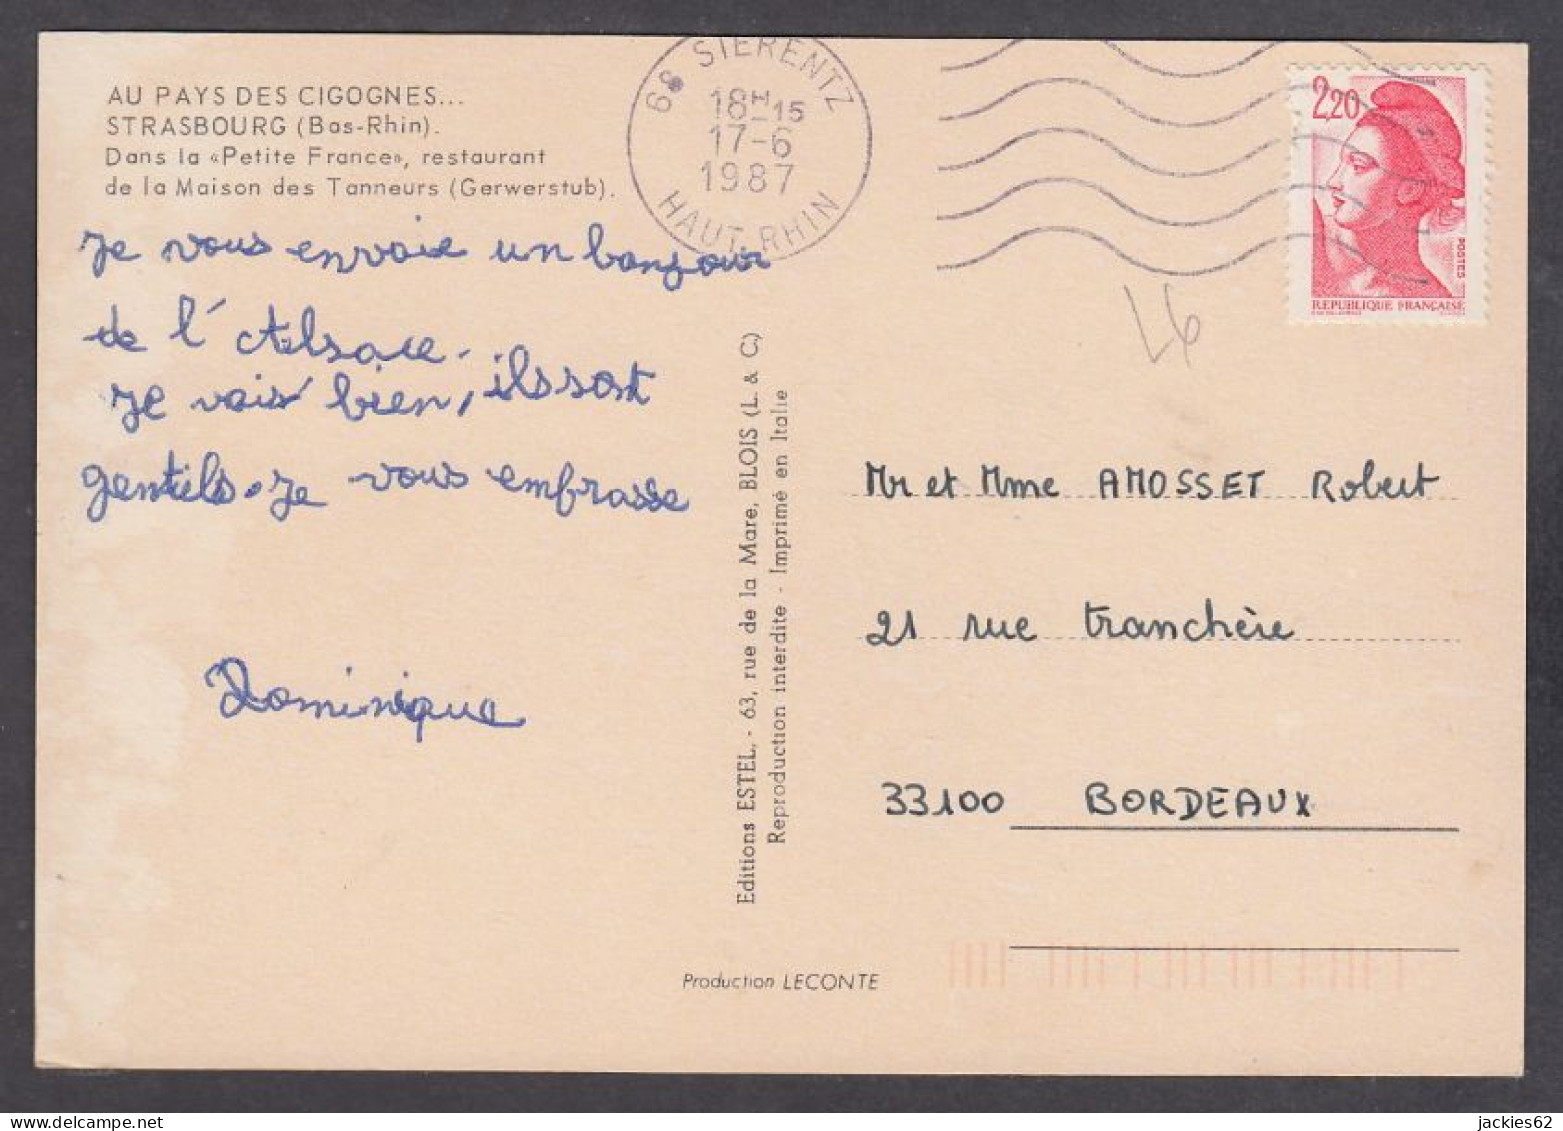 AU PAYS DES CIGOGNES...
STRASBOURG (Bas-Rhin).
Dans la «Petite France», restaurant
de la Maison des Tanneurs (Gerwerstub).
68 SIERENTZ
18H15
17-6
1987
HAUT RHIN
2,20
POSTES
REPUBLIQUE FRANÇAISE
L6
Je vous envoie un bonjour
de l'Alsace.
Je vais bien, ils sont
gentils. Je vous embrasse
Dominique
Editions ESTEL, - 63, rue de la Mare, BLOIS (L. & C)
Reproduction interdite - Imprimé en Italie
Mr et Mme AMOSSET Robert
21 rue tranchère
33100 BORDEAUX
Production LECONTE
jackies62